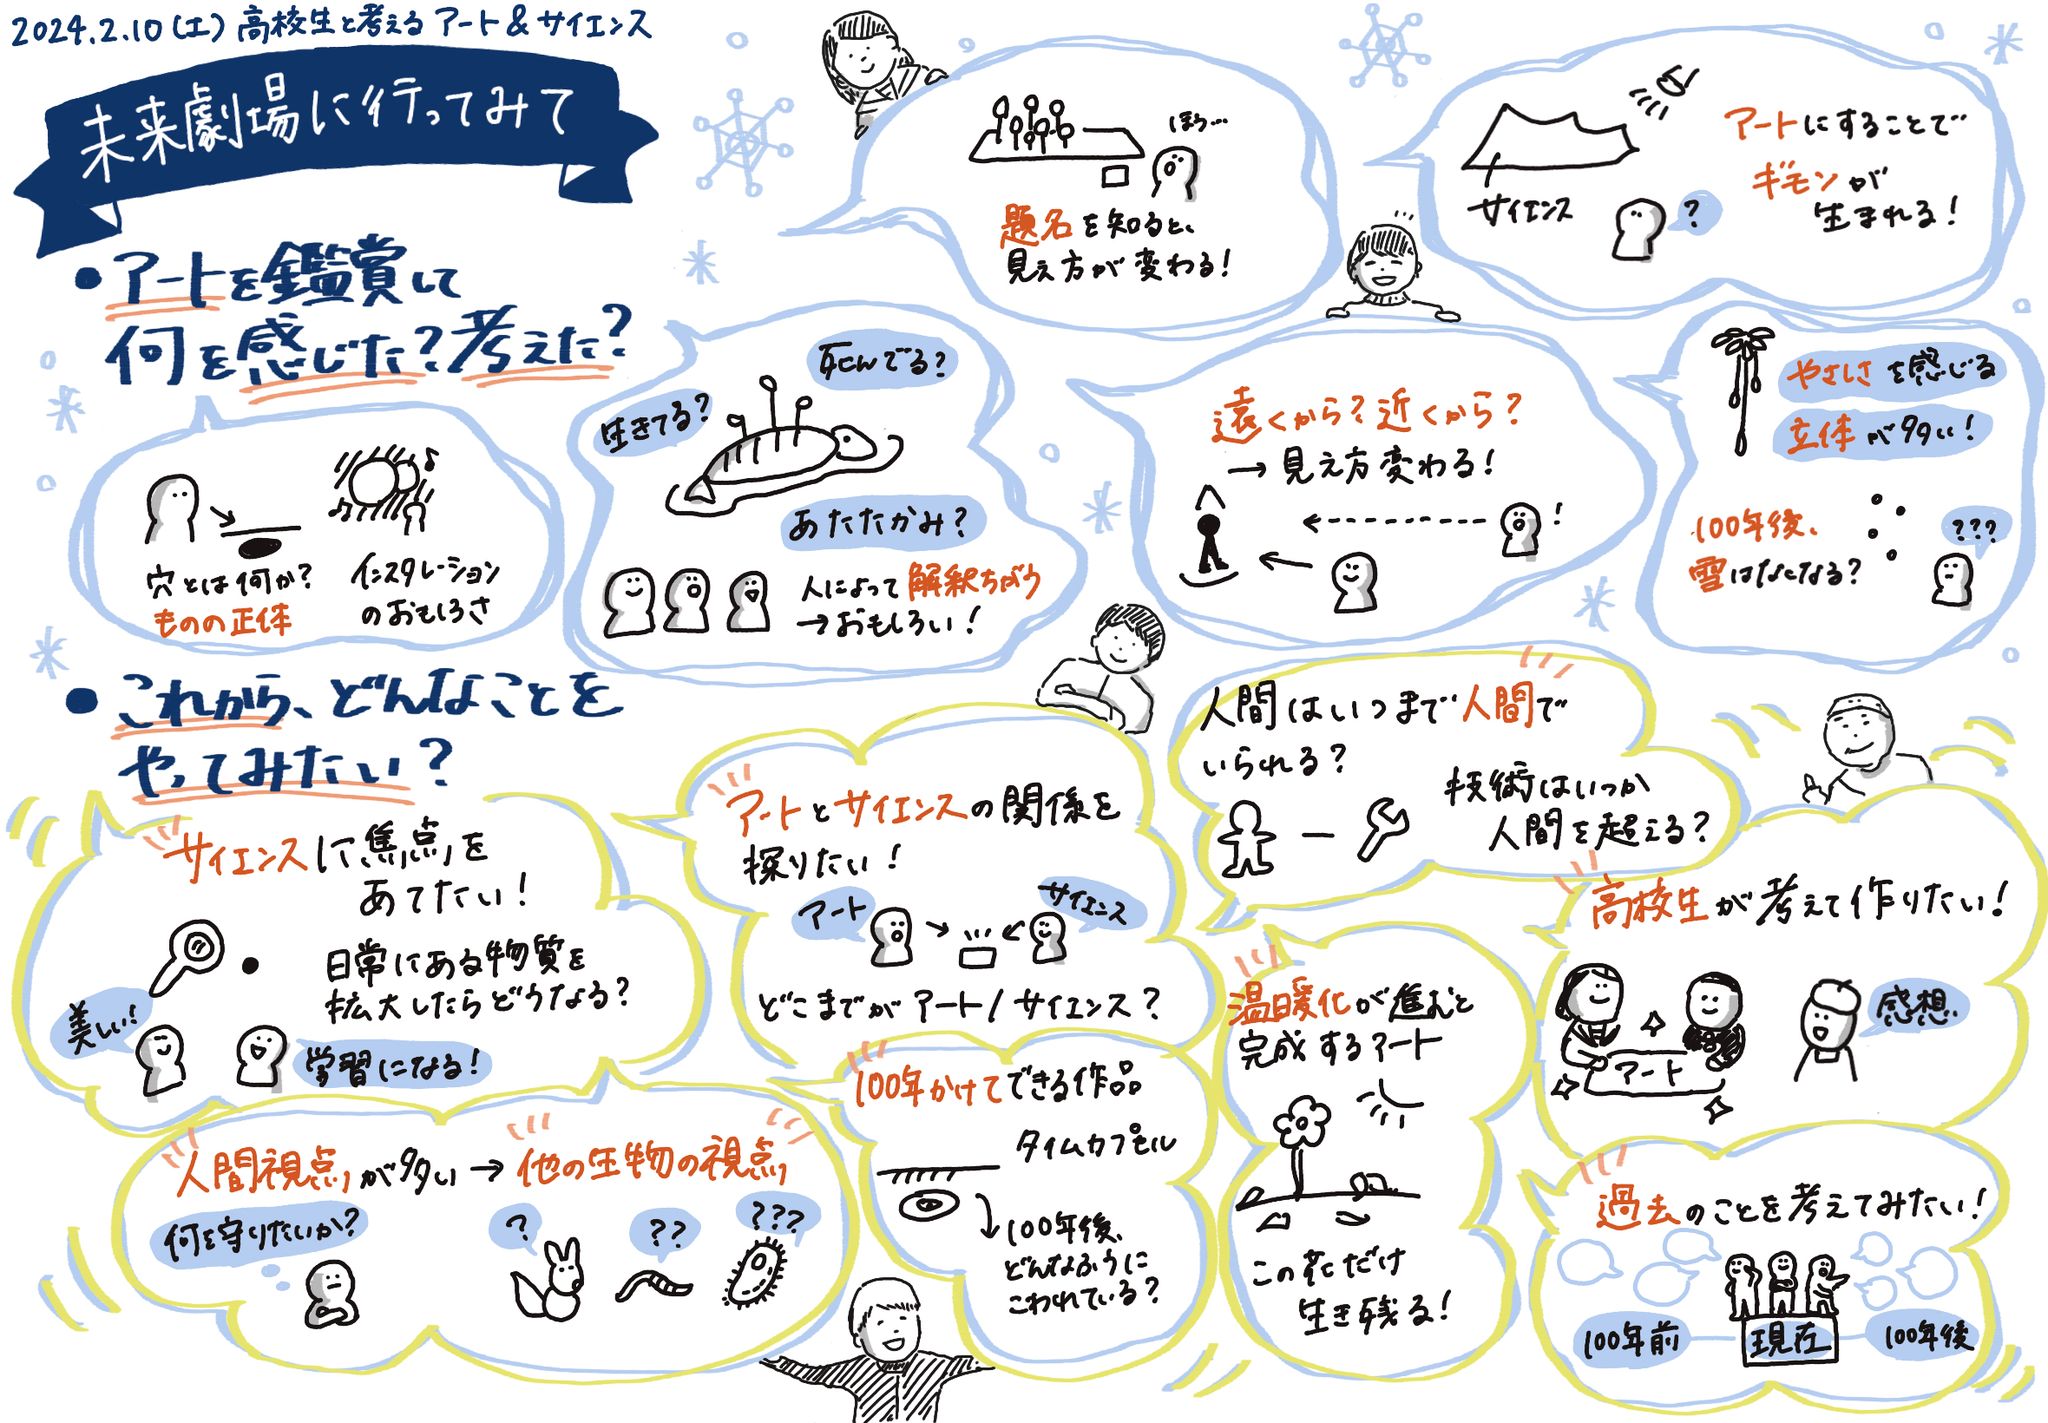 2024.2.10(土) 高校生と考える アート&サイエンス
未来劇場に行ってみて
・アートを鑑賞して
何を感じた?考えた?
穴とは何か?
ものの正体
インスタレーション
のおもしろさ
生きてる?
死んでる?
あたたかみ?
人によって解釈ちがう
→おもしろい!
ほう…
題名を知ると、
見え方が変わる!
サイエンス
?
アートにすることで
ギモンが
生まれる!
遠くから?近くから?
→見え方変わる!
!
やさしさを感じる
立体が多い!
100年後、
雪はなになる?
???
・これから、どんなことを
やってみたい?
サイエンスに焦点を
あてたい!
日常にある物質を
拡大したらどうなる?
美しい!
学習になる!
アートとサイエンスの関係を
探りたい!
アート
サイエンス
どこまでがアート/サイエンス?
人間はいつまで人間で
いられる?
技術はいつか
人間を超える?
高校生が考えて作りたい!
アート
感想
人間視点が多い→他の生物の視点
何を守りたいか?
?
??
???
100年かけてできる作品
タイムカプセル
100年後、
どんなふうに
こわれている?
温暖化が進むと
完成するアート
この花だけ
生き残る!
過去のことを考えてみたい!
100年前
現在
100年後